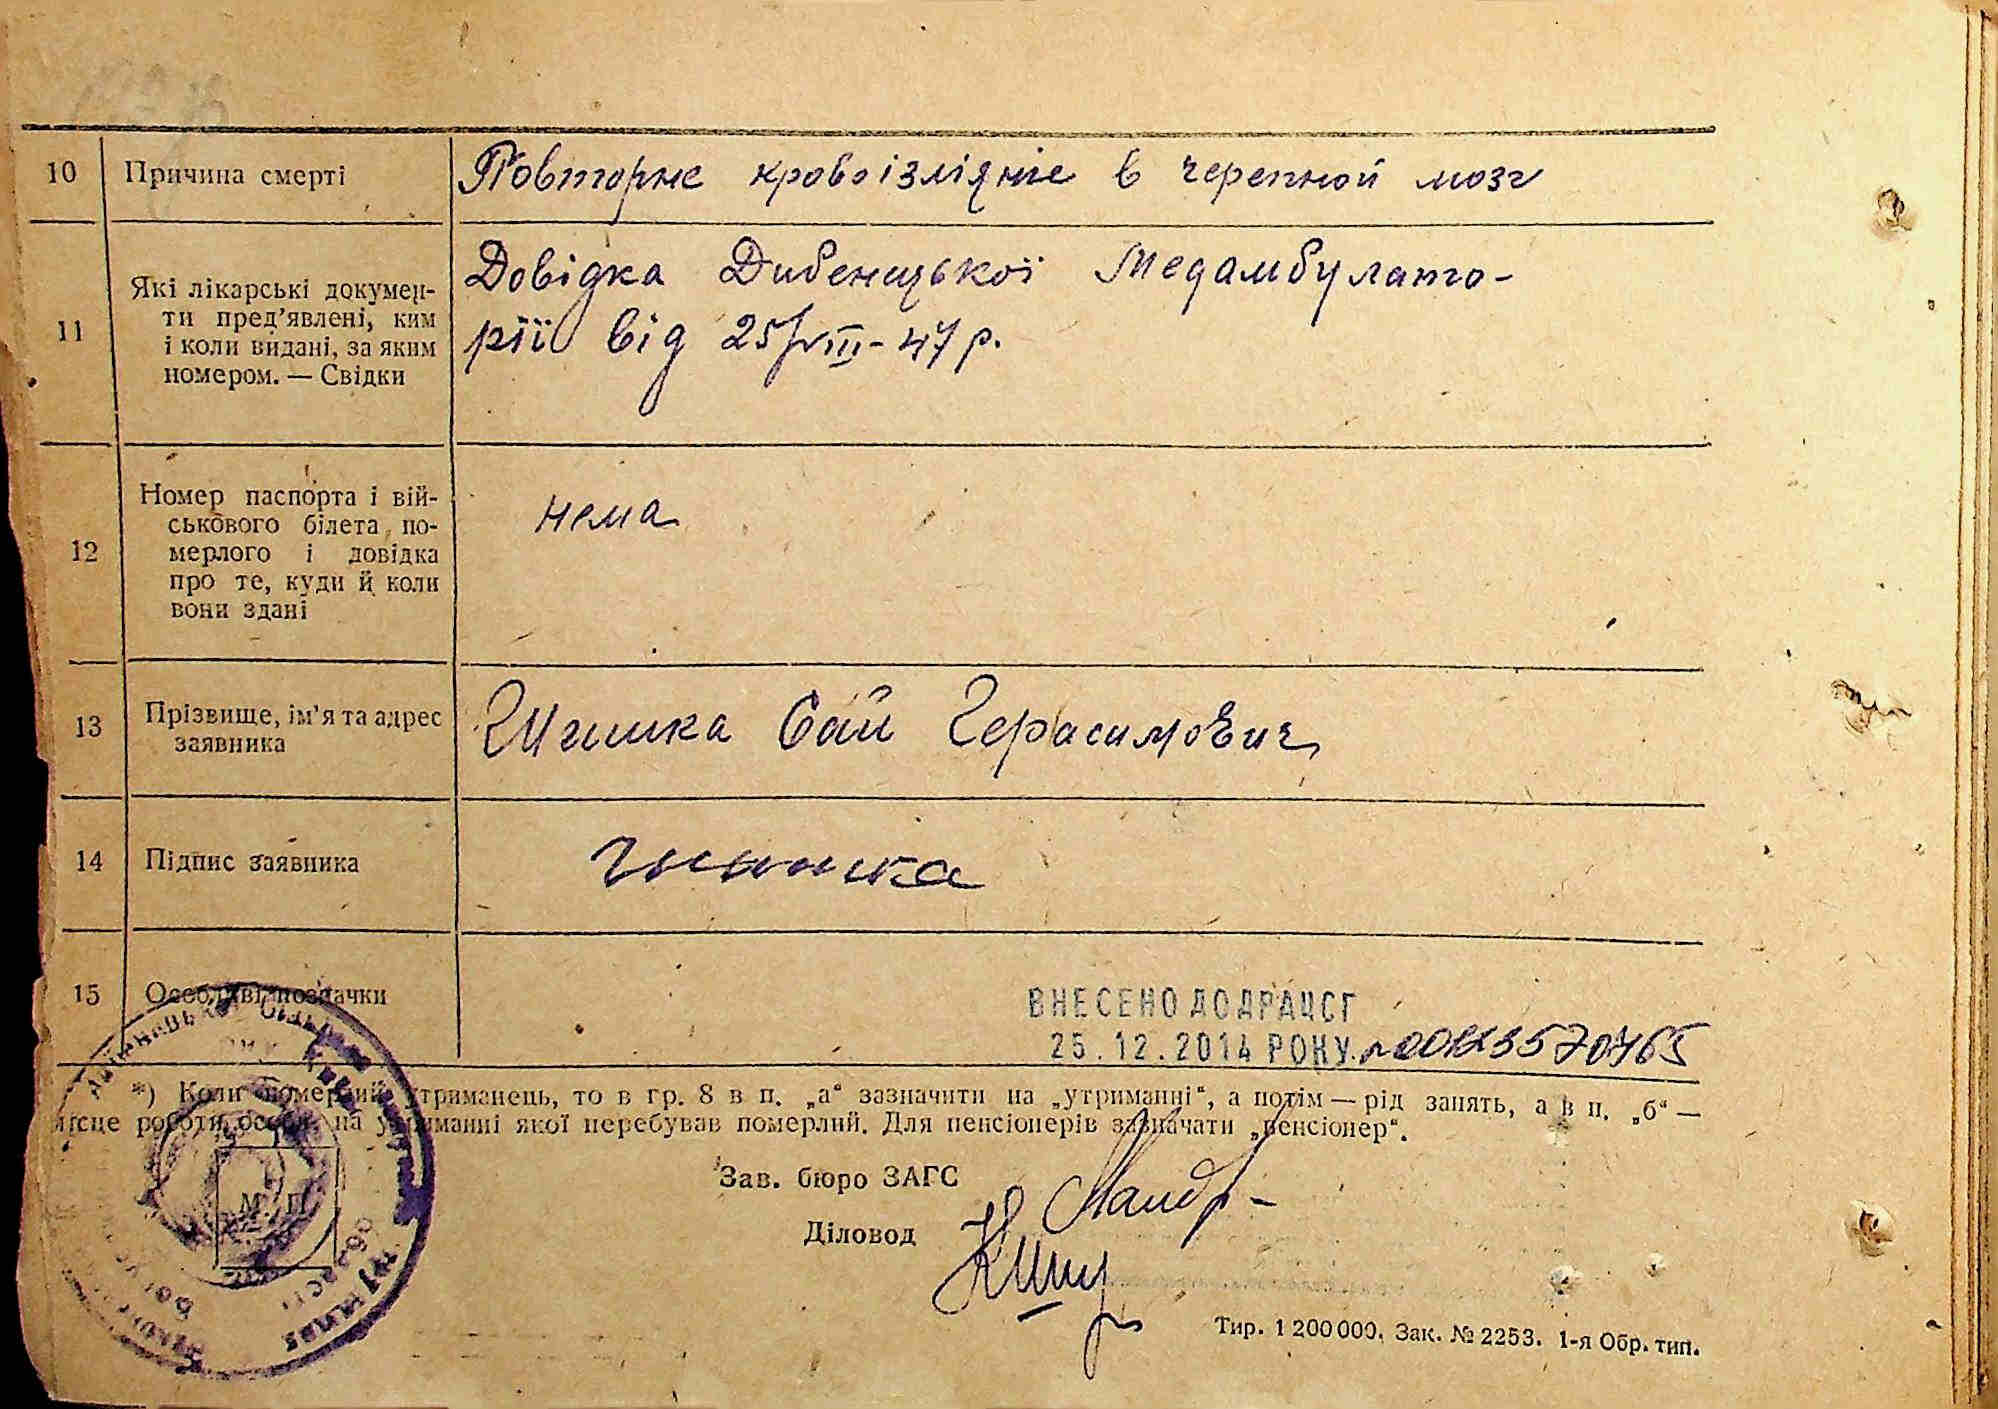 10 Причина смерті Повторне кровоізліяніе в черепной мозг
11 Які лікарські докумен-
ти пред'явлені, ким
і коли видані, за яким
номером. — Свідки
Довідка Дибенецької Медамбулато-
рії від 25/VIII-47 р.
12 Номер паспорта і вій-
ськового білета по-
мерлого і довідка
про те, куди й коли
вони здані
нема
13 Прізвище, ім'я та адрес
заявника
Сай Герасимович
14 Підпис заявника
15 Особливі позначки
ВНЕСЕНО ДО ДРАЦСГ
25.12.2014 РОКУ
*) Коли померлий утриманець, то в гр. 8 в п. „а“ зазначити на „утриманні“, а потім — рід занять, а в п. „б“ —
місце роботи особи, на утриманні якої перебував померлий. Для пенсіонерів зазначати „пенсіонер“.
Зав. бюро ЗАГС
Діловод
М. П.
Тир. 1 200 000. Зак. № 2253. 1-я Обр. тип.